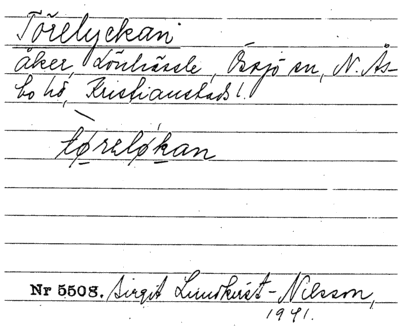 Törelyckan
åker, Lönhässle, Össjö sn, N. Ås-
bo hd, Kristianstads l.
tøreløkan
Nr 5508. Birgit Lundkvist-Nilsson,
1941.